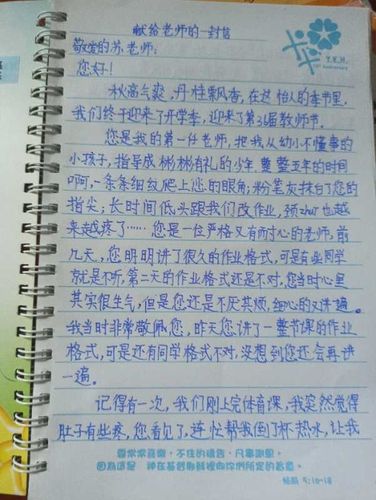 献给老师的一封信
敬爱的苏老师:
您好!
秋高气爽,丹桂飘香,在这怡人的季节里,
我们终于迎来了开学季,迎来了第36届教师节。
您是我的第一任老师,把我从幼小不懂事的
小孩子,指导成彬彬有礼的少年,整整五年的时间
啊,一条条细纹爬上您的眼角;粉笔灰抹白了您的
指尖;长时间低头跟我们改作业,颈zhuī也越
来越疼了……您是一位严格又有耐心的老师,前
几天,您明明讲了很久的作业格式,可是有些同学
就是不听,第二天的作业格式还是不对,您当时心里
其实很生气,但是您还是不厌其烦,细心的又讲一遍。
我当时非常敬佩您,昨天您讲了一整节课的作业
格式,可是还有同学格式不对,没想到您还会再讲
一遍。
记得有一次,我们刚上完体育课,我突然觉得
肚子有些疼,您看见了,连忙帮我倒了杯热水,让我
要常常喜樂,不住的禱告,凡事謝恩,
因為這是 神在基督耶穌裡向你們所定的旨意。
帖前 5:16-18
Y.K.H.
Anniversary